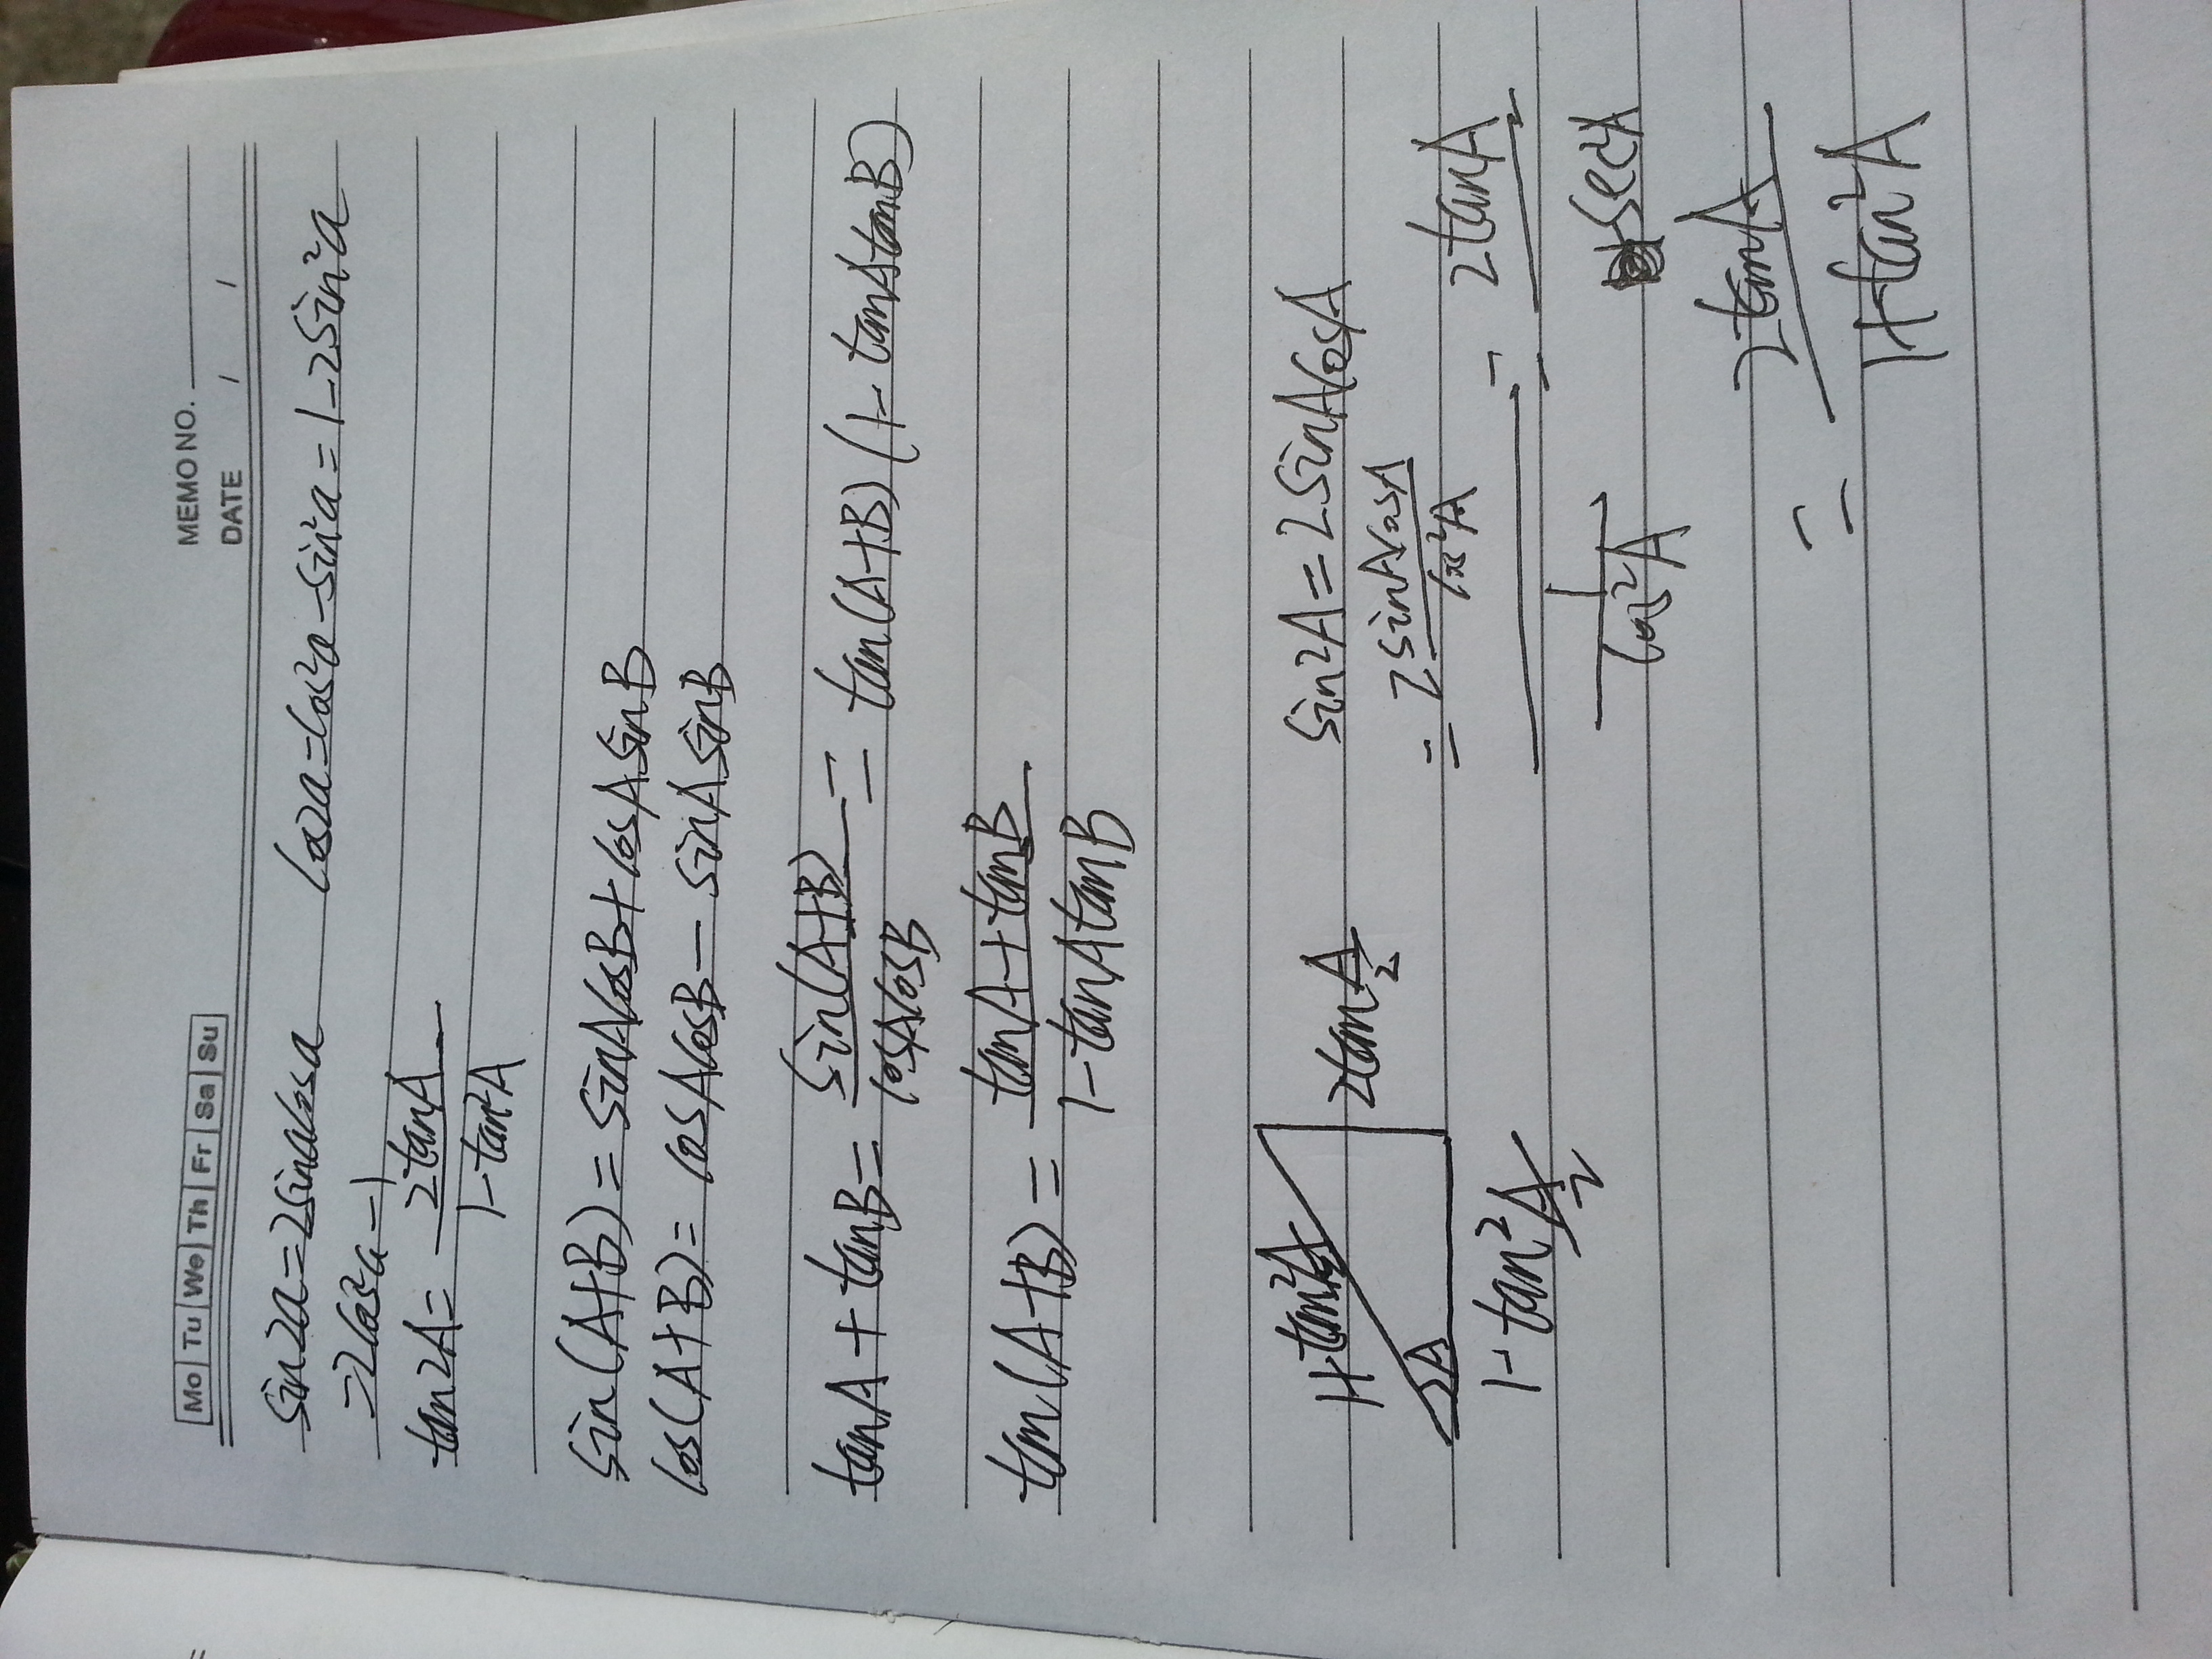 Mo Tu We Th Fr Sa Su
MEMO NO.
DATE / /
sin2a=2sinacosa cos2a=cos²a-sin²a=1-2sin²a
=2cos²a-1
tan2A= 2tanA
1-tan²A
sin(A+B)=sinAcosB+cosAsinB
cos(A+B)= cosAcosB-sinAsinB
tanA+tanB= sin(A+B) = tan(A+B)(1-tanAtanB)
cosAcosB
tan(A+B)= tanA+tanB
1-tanAtanB
1+tan²A/2
2tan A/2
A
1-tan²A/2
sin2A=2sinAcosA
= 2sinAcosA
cos²A
= 2tanA
1
cos²A
sec²A
= 2tanA
1+tan²A